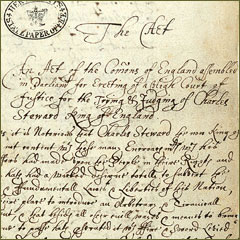 The Act
An Act of the Comons of England assembled
in Parliamt for Erecting of a High Court of
Justice for the Trying & Judging of Charles
Steward King of England
it is Notorious that Charles Steward the now King of
not content with those many Encroachmts wch his
had made upon the People in their Rights and
hath had a wicked designe totally to subvert the
Fundamentall Lawes & Liberties of this Nation
place to introduce an Arbitrary & Tirannicall
that besides all other evill wayes & meanes to bring
to pass hath prosecuted it wth fire & Sword Levied
PAPER OFFICE